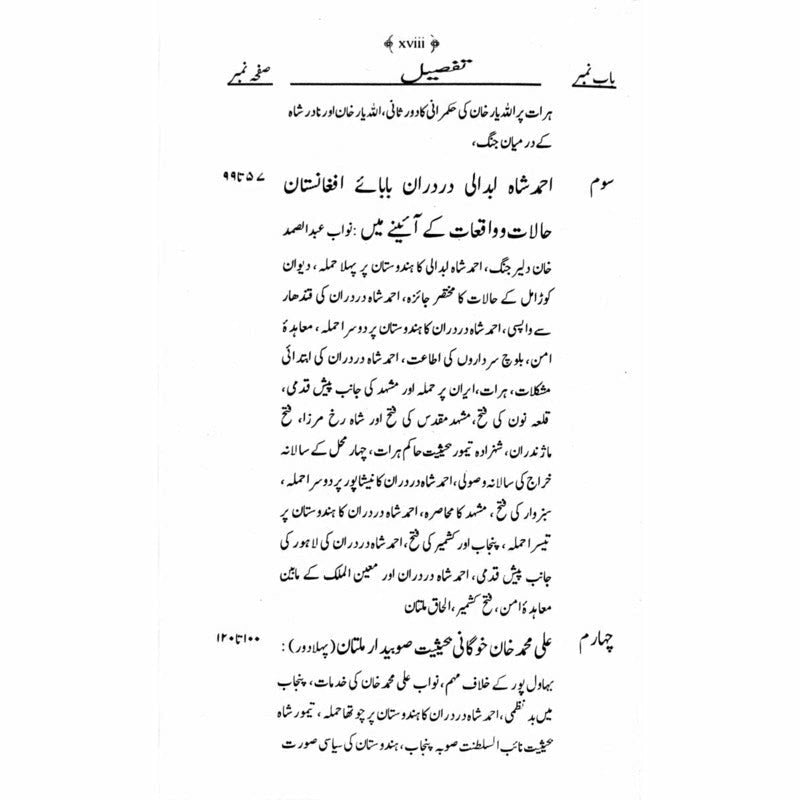 ﴿ xviii ﴾
باب نمبر تفصیل صفحہ نمبر
ہرات پر اللہ یار خان کی حکمرانی کا دور ثانی، اللہ یار خان اور نادر شاہ
کے درمیان جنگ،
سوم احمد شاہ ابدالی دردران بابائے افغانستان ۵۷ تا ۹۹
حالات و واقعات کے آئینے میں: نواب عبدالصمد
خان دلیر جنگ، احمد شاہ ابدالی کا ہندوستان پر پہلا حملہ، دیوان
کوڑامل کے حالات کا مختصر جائزہ، احمد شاہ دردران کی قندھار
سے واپسی، احمد شاہ دردران کا ہندوستان پر دوسرا حملہ، معاہدۂ
امن، بلوچ سرداروں کی اطاعت، احمد شاہ دردران کی ابتدائی
مشکلات، ہرات، ایران پر حملہ اور مشہد کی جانب پیش قدمی،
قلعہ نون کی فتح، مشہد مقدس کی فتح اور شاہ رخ مرزا، فتح
ماژندران، شہزادہ تیمور بحیثیت حاکم ہرات، چہار محل کے سالانہ
خراج کی سالانہ وصولی، احمد شاہ دردران کا نیشاپور پر دوسرا حملہ،
سبزوار کی فتح، مشہد کا محاصرہ، احمد شاہ دردران کا ہندوستان پر
تیسرا حملہ، پنجاب اور کشمیر کی فتح، احمد شاہ دردران کی لاہور کی
جانب پیش قدمی، احمد شاہ دردران اور معین الملک کے مابین
معاہدۂ امن، فتح کشمیر، الحاق ملتان
چہارم علی محمد خان خوگانی بحیثیت صوبیدار ملتان (پہلا دور): ۱۰۰ تا ۱۲۰
بہاول پور کے خلاف مہم، نواب علی محمد خان کی خدمات، پنجاب
میں بدنظمی، احمد شاہ دردران کا ہندوستان پر چوتھا حملہ، تیمور شاہ
بحیثیت نائب السلطنت صوبہ پنجاب، ہندوستان کی سیاسی صورت